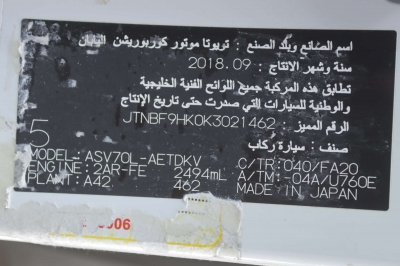 اسم الصانع وبلد الصنع : تويوتا موتور كوربوريشن اليابان
سنة وشهر الانتاج : 2018.09
تطابق هذه المركبة جميع اللوائح الفنية الخليجية
والوطنية للسيارات التي صدرت حتى تاريخ الإنتاج
الرقم المميز : JTNBF9HK0K3021462
صنف : سيارة ركاب
5
MODEL: ASV70L-AETDKV C/TR: 040/FA20
ENGINE: 2AR-FE 2494mL A/TM: -04A/U760E
PLANT: A42 462 MADE IN JAPAN